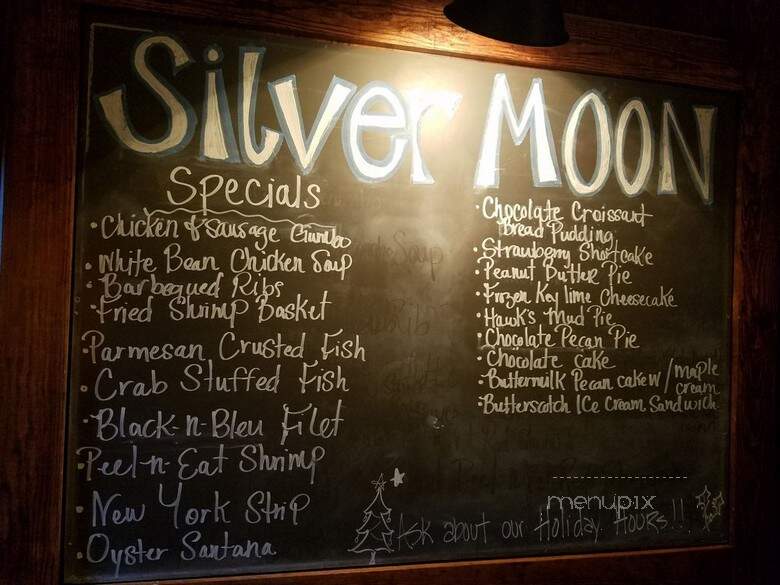 Silver Moon
Specials
• Chicken & Sausage Gumbo
• White Bean Chicken Soup
• Barbequed Ribs
• Fried Shrimp Basket
• Parmesan Crusted Fish
• Crab Stuffed Fish
• Black-n-Bleu Filet
• Peel-n-Eat Shrimp
• New York Strip
• Oyster Santana
• Chocolate Croissant
Bread Pudding
• Strawberry Shortcake
• Peanut Butter Pie
• Frozen Key lime Cheesecake
• Hawk's Mud Pie
• Chocolate Pecan Pie
• Chocolate cake
• Buttermilk Pecan cake w/ maple
cream
• Butterscotch Ice Cream Sandwich
menupix
Ask about our Holiday Hours!!